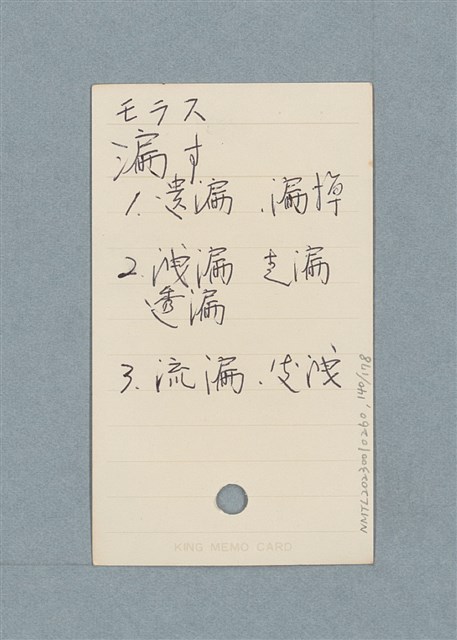 モラス
漏す
1. 遺漏 .漏掉
2. 洩漏 走漏
透漏
3. 流漏.发洩
KING MEMO CARD
NMTL20230010260, 140/178